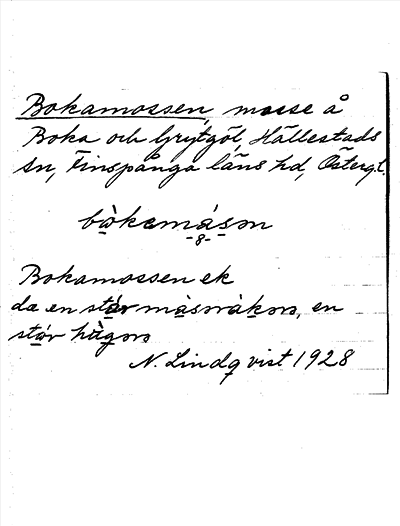 Bokamossen, mosse å
Boka och Grytgöl, Hällestads
sn, Finspånga läns hd, Österg.l.
bòkamå̀sən
-8-
Bokamossen ek
da en stór måsnråkors, en
stór hågors
N. Lindqvist 1928